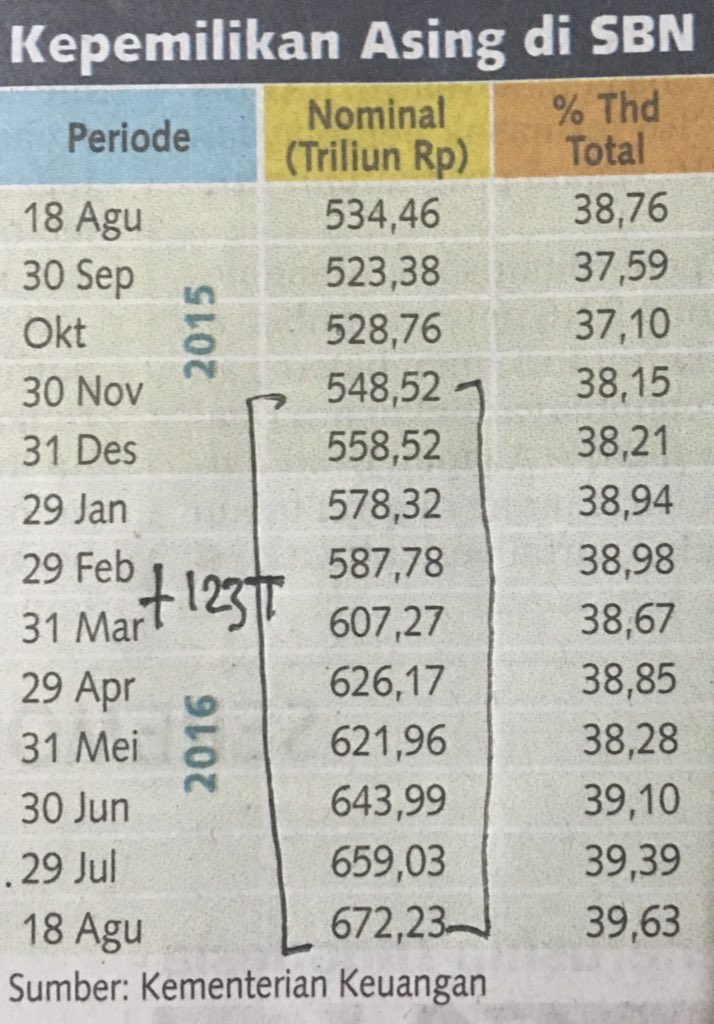 Kepemilikan Asing di SBN
Periode Nominal (Triliun Rp) % Thd Total
18 Agu 534,46 38,76
30 Sep 523,38 37,59
2015
Okt 528,76 37,10
30 Nov 548,52 38,15
31 Des 558,52 38,21
29 Jan 578,32 38,94
29 Feb 587,78 38,98
+123T
31 Mar 607,27 38,67
29 Apr 626,17 38,85
2016
31 Mei 621,96 38,28
30 Jun 643,99 39,10
29 Jul 659,03 39,39
18 Agu 672,23 39,63
Sumber: Kementerian Keuangan